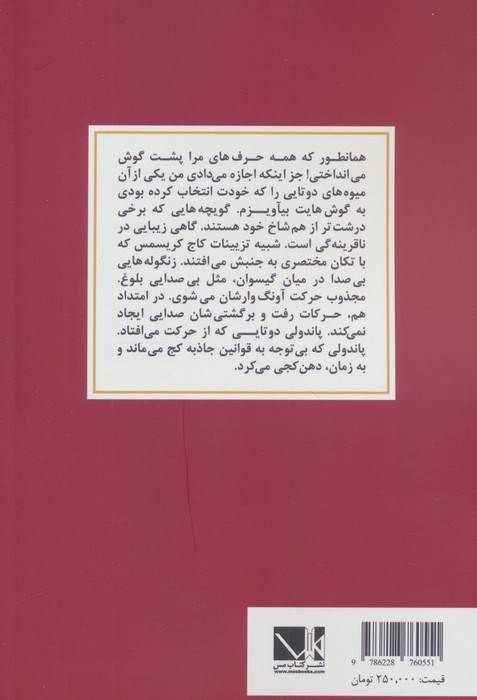 همانطور که همه حرف‌های مرا پشت گوش
می‌انداختی! جز اینکه اجازه می‌دادی من یکی از آن
میوه‌های دوتایی را که خودت انتخاب کرده بودی
به گوش‌هایت بیآویزم. گویچه‌هایی که برخی
درشت‌تر از هم‌شاخ خود هستند. گاهی زیبایی در
ناقرینه‌گی است. شبیه تزیینات کاج کریسمس که
با تکان مختصری به جنبش می‌افتند. زنگوله‌هایی
بی‌صدا در میان گیسوان، مثل بی‌صدایی بلوغ.
مجذوب حرکت آونگ‌وارشان می‌شوی. در امتداد
هم، حرکات رفت و برگشتی‌شان صدایی ایجاد
نمی‌کند. پاندولی دوتایی که از حرکت می‌افتاد.
پاندولی که بی‌توجه به قوانین جاذبه کج می‌ماند و
به زمان، دهن‌کجی می‌کرد.
نشر کتاب مس
www.mesbooks.com
9 786228 760551
قیمت: ۲۵۰,۰۰۰ تومان